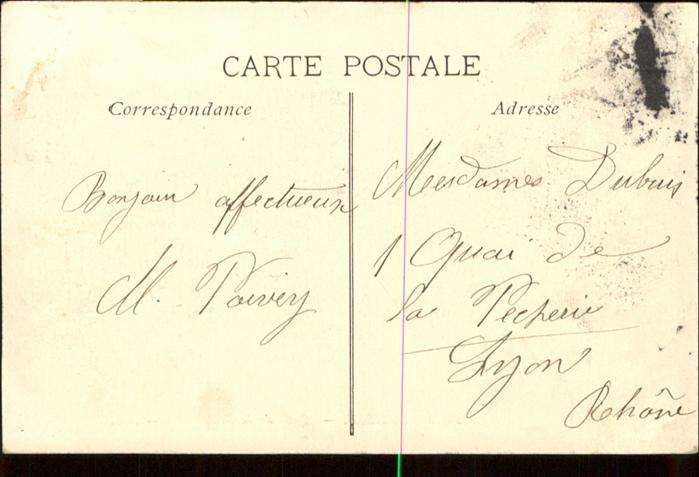 CARTE POSTALE
Correspondance
Adresse
Bonjour affectueux
M.
Mesdames Dubuis
1 Quai de
la Pecherie
Lyon
Rhône